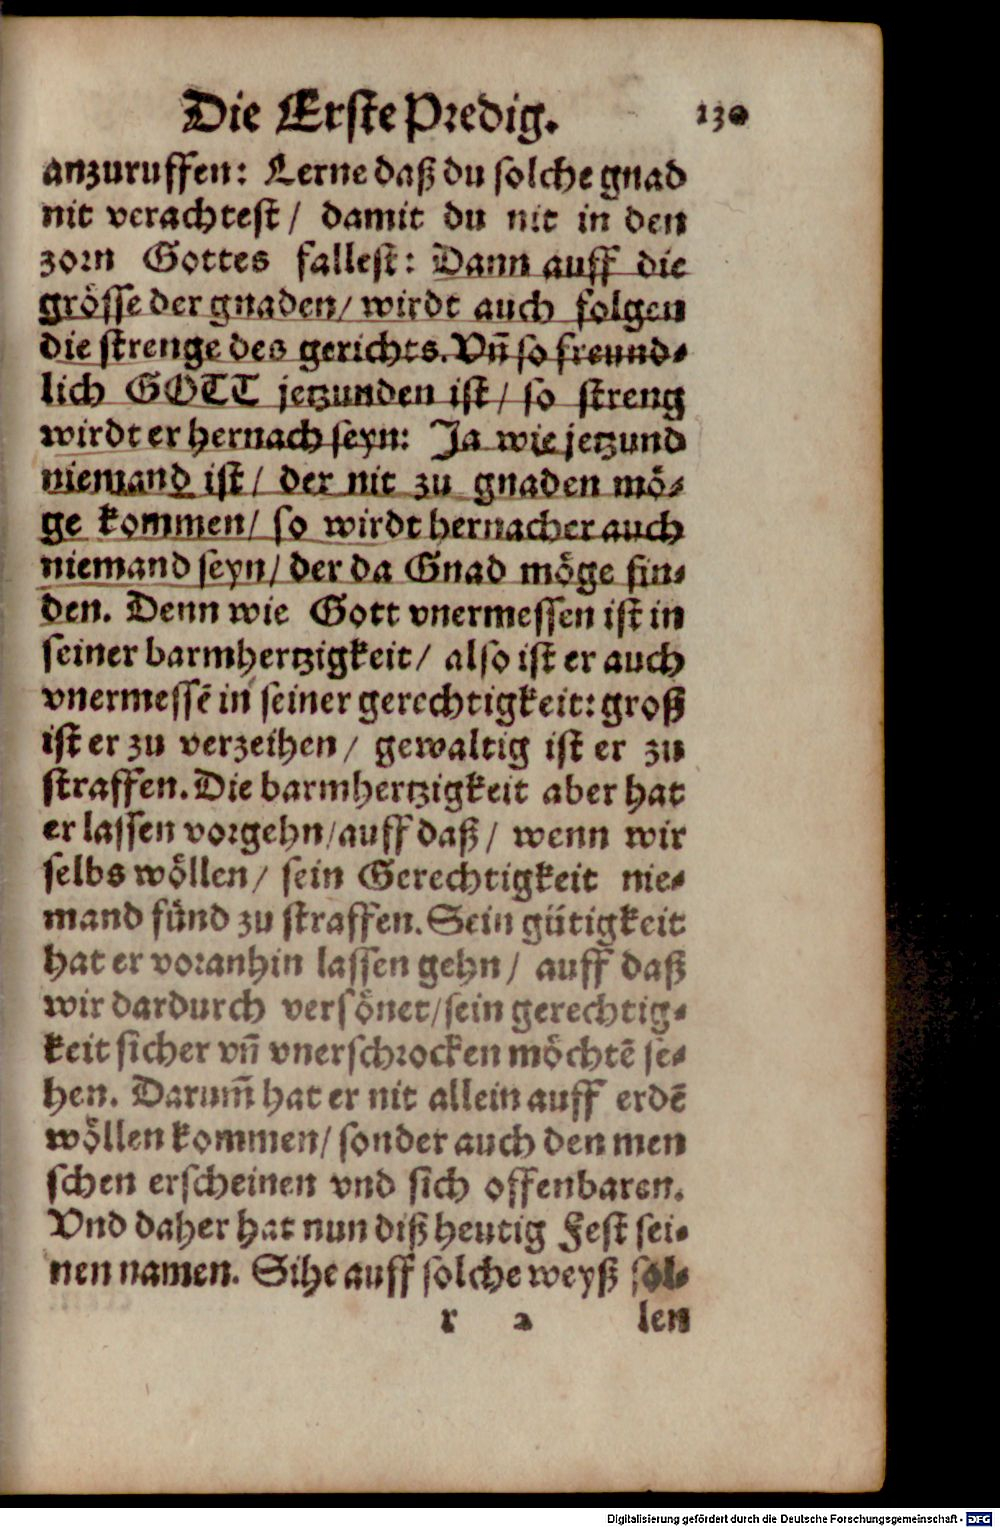 Die Erste Predig. 130
anzuruffen: Lerne daß du solche gnad
nit verachtest / damit du nit in den
zorn Gottes fallest: Dann auff die
grösse der gnaden/ wirdt auch folgen
die strenge des gerichts. Vñ so freund⸗
lich GOTT jetzunden ist / so streng
wirdt er hernach seyn: Ja wie jetzund
niemand ist / der nit zu gnaden mö⸗
ge kommen/ so wirdt hernacher auch
niemand seyn/ der da Gnad möge fin⸗
den. Denn wie Gott vnermessen ist in
seiner barmhertzigkeit/ also ist er auch
vnermessẽ in seiner gerechtigkeit: groß
ist er zu verzeihen / gewaltig ist er zu
straffen. Die barmhertzigkeit aber hat
er lassen vorgehn/auff daß / wenn wir
selbs wöllen/ sein Gerechtigkeit nie⸗
mand fünd zu straffen. Sein gütigkeit
hat er voranhin lassen gehn / auff daß
wir dardurch versönet/sein gerechtig⸗
keit sicher vñ vnerschrocken möchtẽ se⸗
hen. Darum̃ hat er nit allein auff erdẽ
wöllen kommen/ sonder auch den men
schen erscheinen vnd sich offenbaren.
Vnd daher hat nun diß heutig Fest sei⸗
nen namen. Sihe auff solche weyß sol⸗
r 2 len
Digitalisierung gefördert durch die Deutsche Forschungsgemeinschaft - DFG